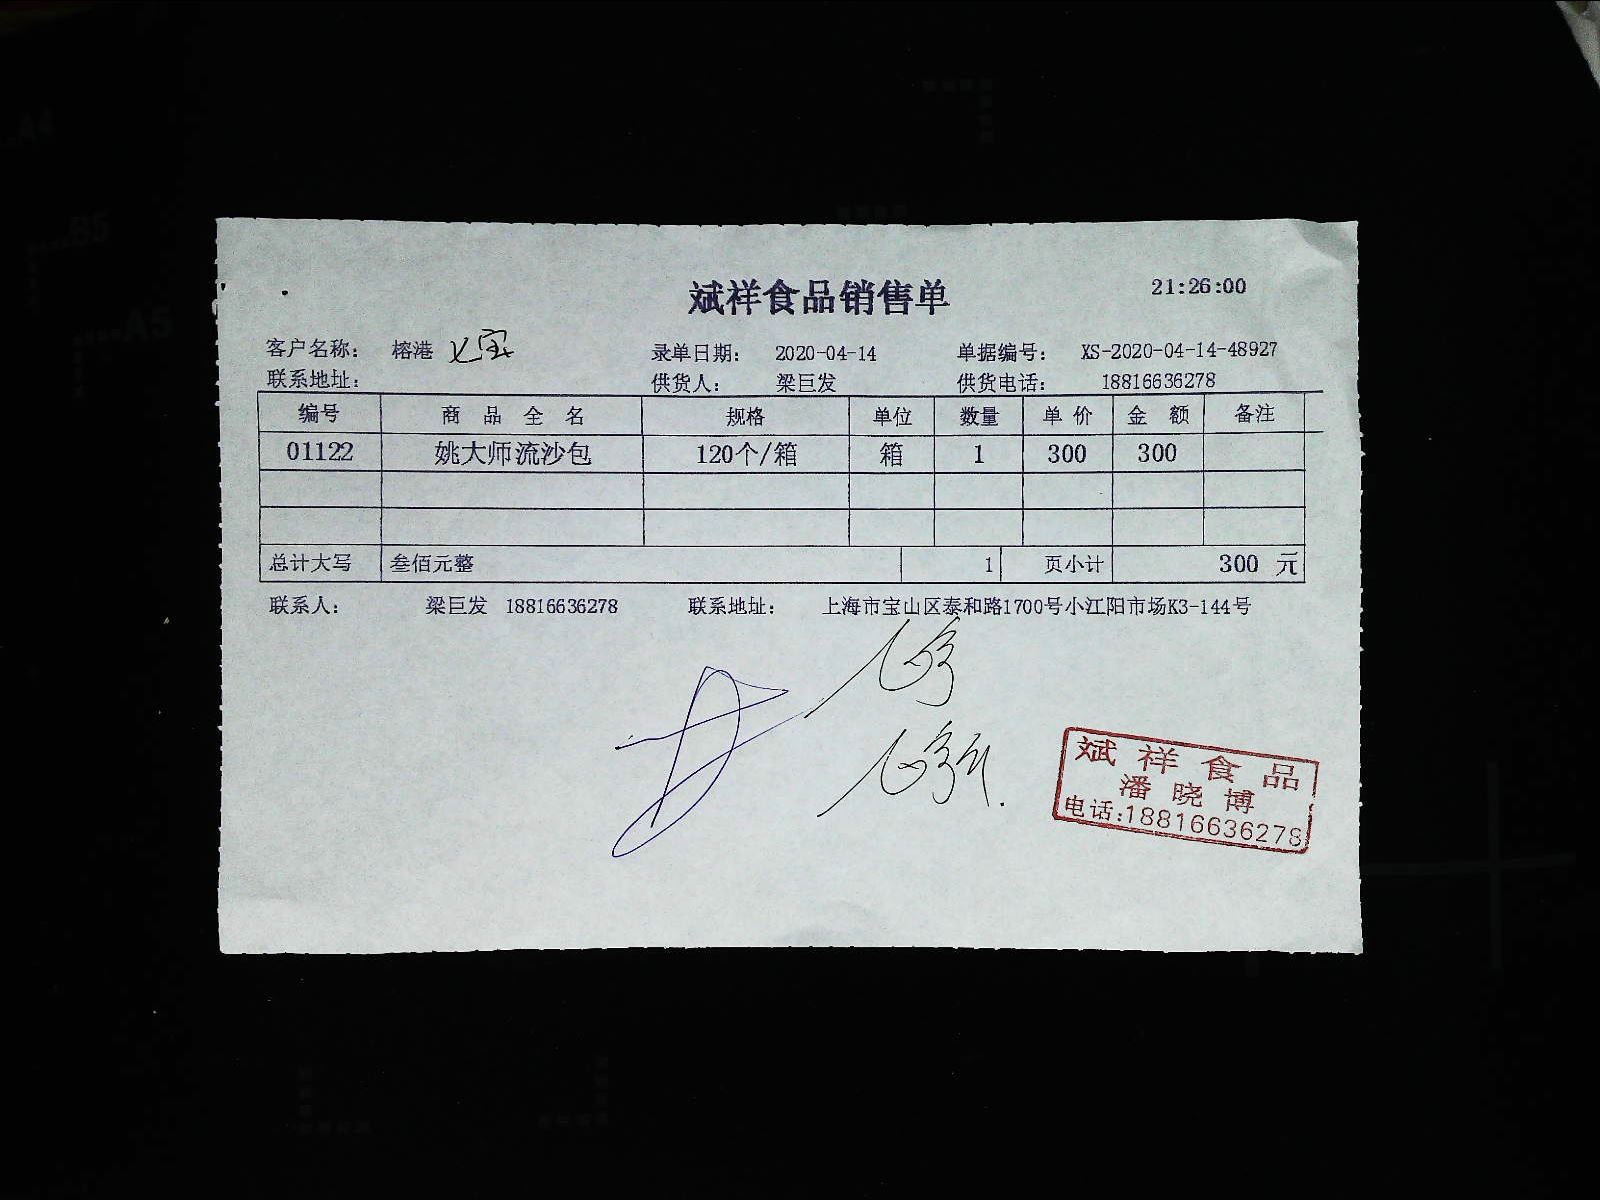 斌祥食品销售单 21:26:00
客户名称： 榕港 七宝 录单日期： 2020-04-14 单据编号： XS-2020-04-14-48927
联系地址： 供货人： 梁巨发 供货电话： 18816636278
编号 商 品 全 名 规格 单位 数量 单 价 金 额 备注
01122 姚大师流沙包 120个/箱 箱 1 300 300
总计大写 叁佰元整 1 页小计 300 元
联系人： 梁巨发 18816636278 联系地址： 上海市宝山区泰和路1700号小江阳市场K3-144号
斌祥食品
潘晓博
电话:18816636278